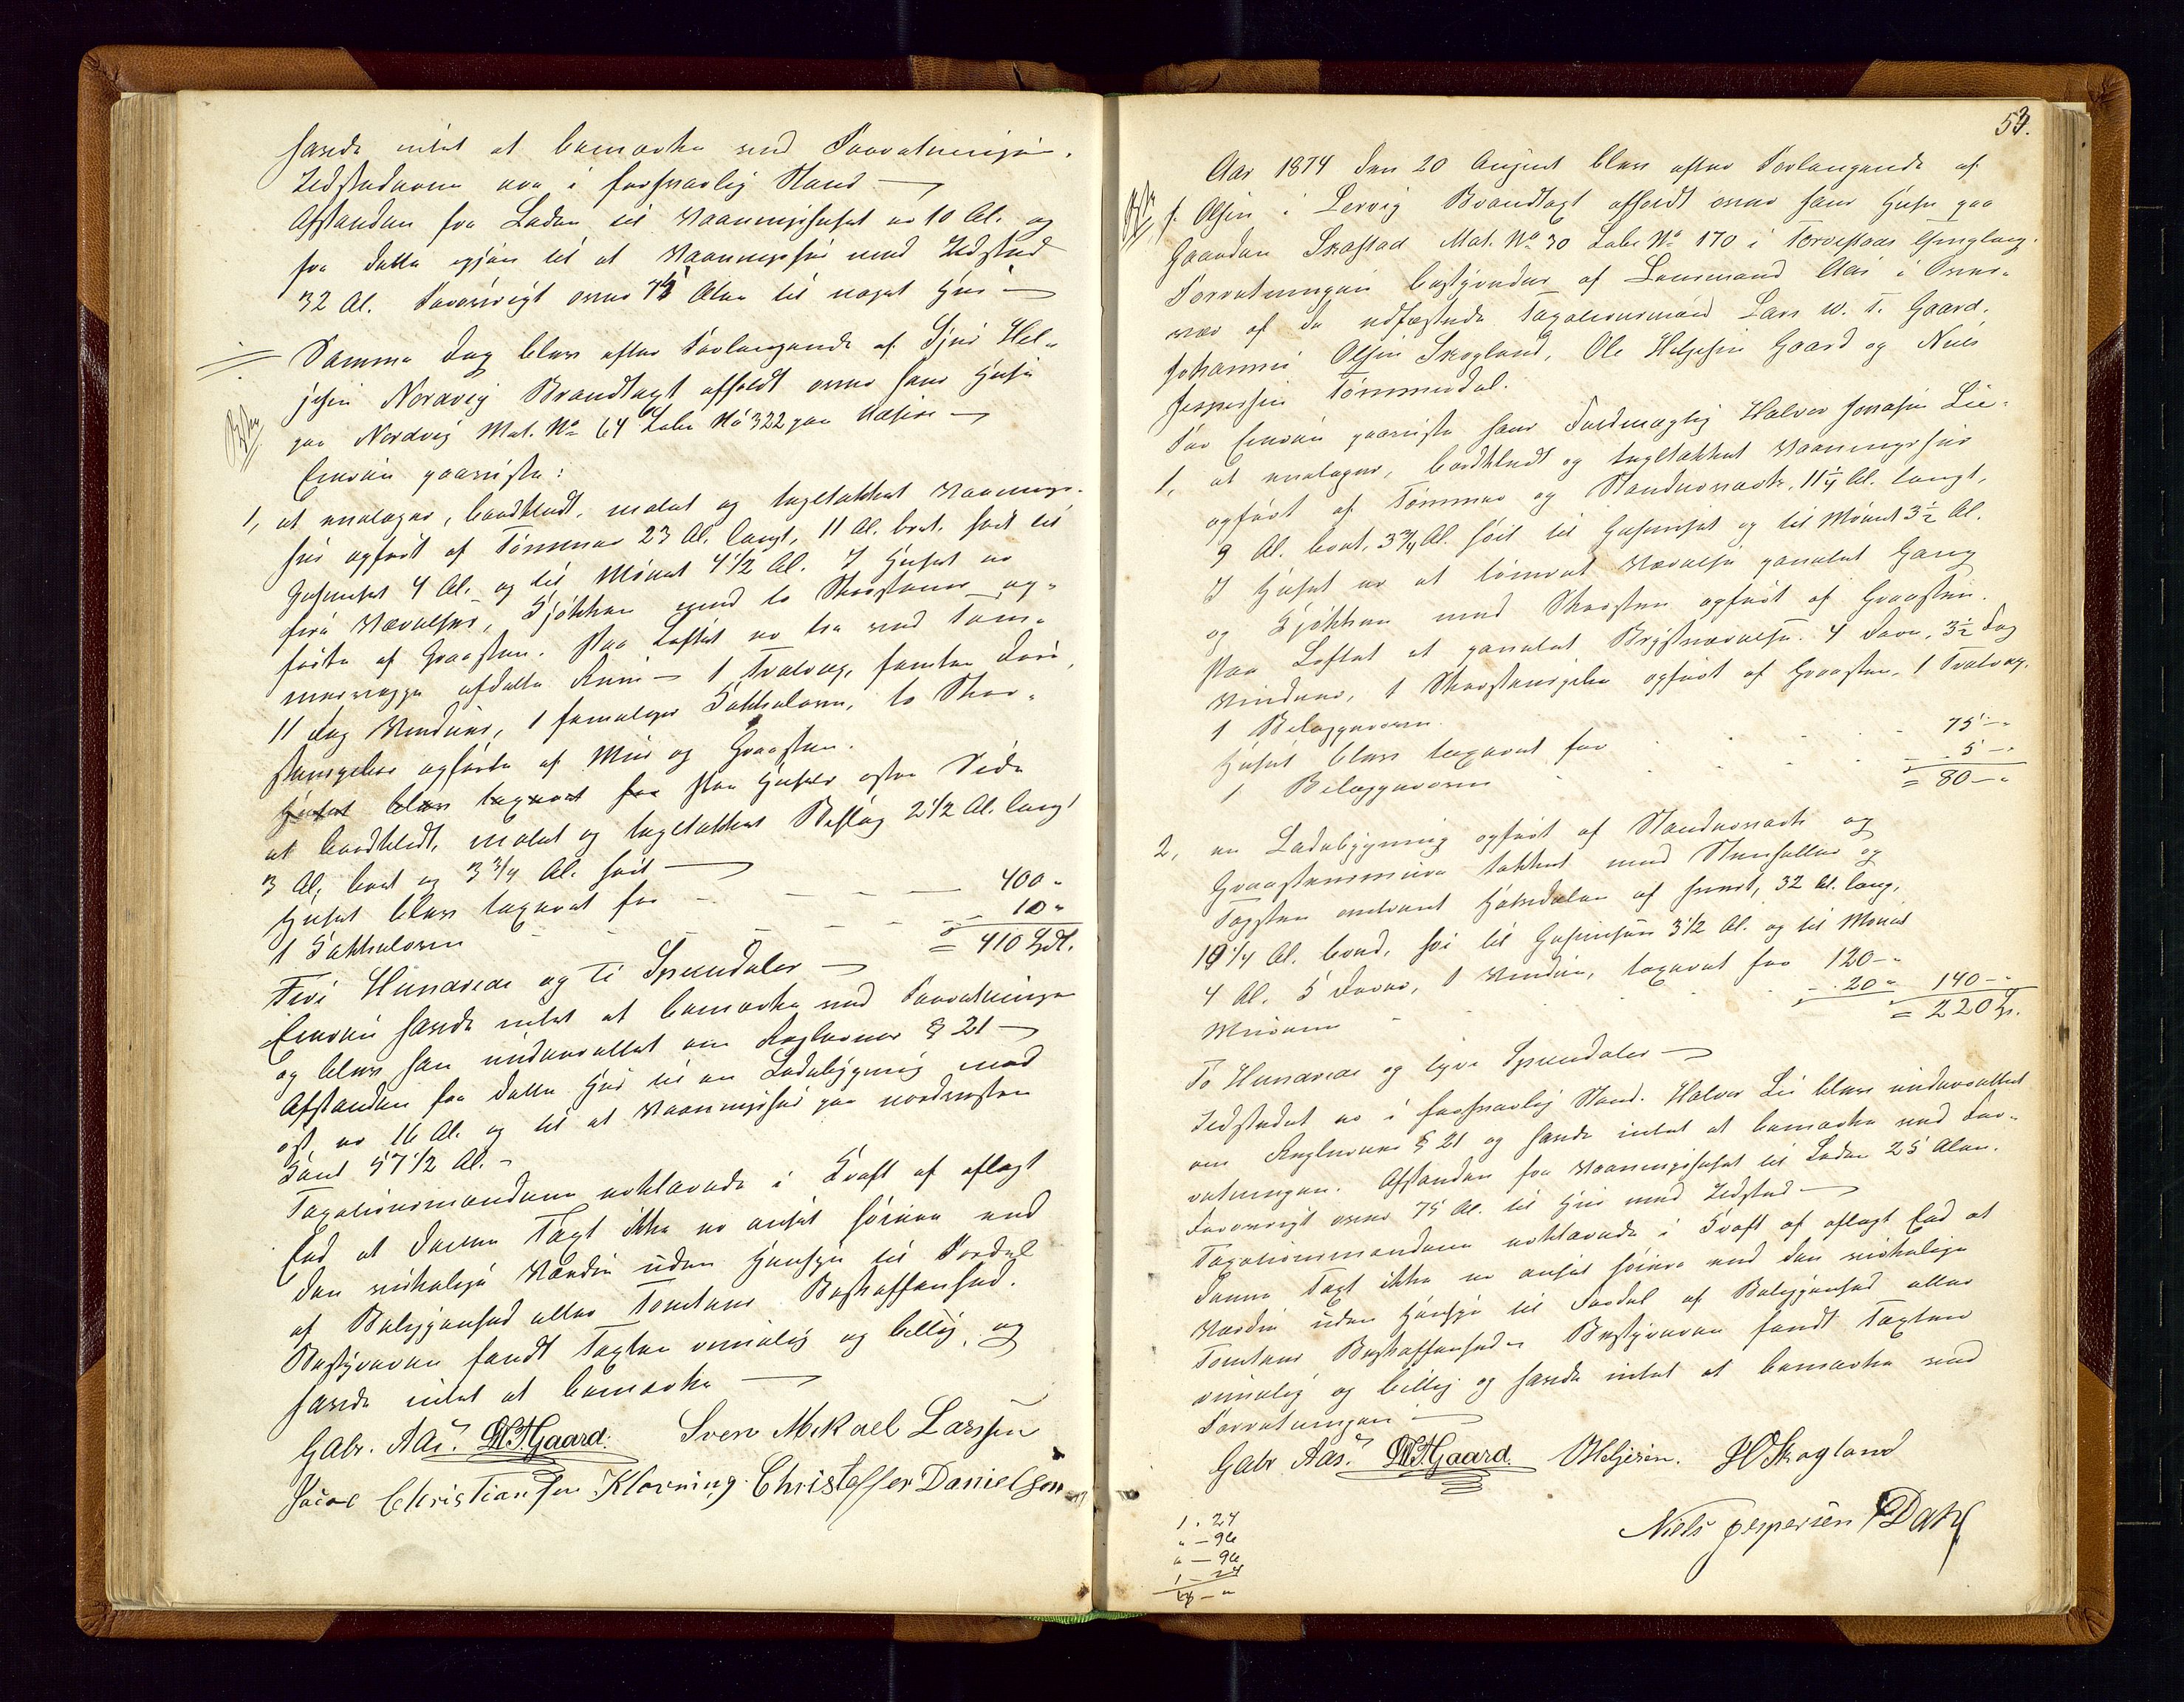 havde intet at bemærke med Forretningen.
Ildstederne ere i forsvarlig Stand
Afstanden fra Laden til Vaaningshuset er 10 Al. og
fra dette igjen til et Vaaningshus med Ildsted
32 Al. Forøvrigt over 75 Alen til noget Huus
Samme Dag blev efter Forlangende af Sjur Hel-
gesen Nordvig Brandtaxt afholdt over hans Huse
paa Nordvig Mat. No 64 Løbe No 322 paa
Enrün paaviste:
1, et enetages, bordklædt, malet og tagltækket Vaanings-
hus opført af Tømmer 23 Al. langt, 11 Al. bret. høit til
Gesimset 4 Al. og til Mønet 4 1/2 Al. I Huset er
fire Værelser, Kjøkken med to Skorstene op-
førte af Graasten. Paa Loftet er tre med Tøm-
mervægge afdelte Rum 1 Trætrap, femten Døre,
11 Fag Vinduer, 1 Kakkelovn, to Skor-
stenspiber opførte af Mur og Graasten.
Huset blev taxeret for Paa Husets østre Side
et bordklædt, malet og tagltækket Bislag 2 1/2 Al. langt
3 Al. bret og 3 3/4 Al. høit
Huset blev taxeret for 400 -
1 Kakkelovn 10 -
= 410 Spdl.
Fire Hundrede og Ti Speciedaler
Eieren havde intet at bemærke med Forretningen
og blev han underrettet om Reglernes § 21
Afstanden fra dette Hus til en Ladebygning mod
øst er 16 Al. og til et Vaaningshus paa nordvestre
Kant 57 1/2 Al. -
Taxationsmændene erklærede i Kraft af aflagt
Eed at denne Taxt ikke er ansat høiere end
den virkelige Værdie uden Hensyn til Fordel
af Beliggenhed eller Tomtens Beskaffenhed.
Bestyreren fandt Taxten rimelig og billig, og
havde intet at bemærke
Gabr. Aas. LWTGaard. Sven Mikael Larssen
Jacob Christiansen Klovning. Christoffer Danielsen

53.
Aar 1874 den 20 August blev efter Forlangende af
J. Olsen i Lervig Brandtaxt afholdt over hans Huse paa
Gaarden Skastad Mat. No 30 Løbe No 170 i Torvestads Thinglaug.
Forretningen bestyredes af Lensmand Aas i Over-
vær af de udfæstede Taxationsmænd Lars W. T. Gaard,
Johannes Olsen Skogland, Ole Helgesen Gaard og Niels
Jespersen Tømmerdal.
For Eieren paaviste hans Fuldmægtig Halvor Jonasen Lie:
1, et enetages, bordklædt og tagltækket Vaaningshus
opført af Tømmer og Standerværk, 11 1/4 Al. langt,
9 Al. bret, 3 3/4 Al. høit til Gesimset og til Mønet 3 1/2 Al.
I Huset er et tømret Værelse panelet Gang
og Kjøkken med Skorsten opført af Graasten.
Paa Loftet et panelet Brystværelse. 4 Døre, 3 1/2 Fag
Vinduer, 1 Skorstenspibe opført af Graasten, 1 Trætrap.
1 Bilæggerovn.
Huset blev taxeret for 75 - "
1 Bilæggerovn 5 - "
= 80 - "
2, en Ladebygning opført af Standerværk og
Graastensmure tækket med Stenheller og
Tagsten 32 Al. lang,
10 1/4 Al. bred, høi til Gesimsen 3 1/2 Al. og til Mønet
4 Al. 5 Døre, 1 Vindue, taxeret for 120 - "
Murene 20 - " 140 - "
= 220 Sp.
To Hundrede og tyve Speciedaler
Ildstedet er i forsvarlig Stand. Halvor Lie blev underrettet
om Reglernes § 21 og havde intet at bemærke med For-
retningen. Afstanden fra Vaaningshuset til Laden 25 Alen.
Forøvrigt over 75 Al. til Hus med Ildsted
Taxationsmændene erklærede i Kraft af aflagt Eed at
denne Taxt ikke er ansat høiere end den virkelige
Værdie uden Hensyn til Fordel af Beliggenhed eller
Tomtens Beskaffenhed. Bestyreren fandt Taxten
rimelig og billig og havde intet at bemærke med
Forretningen
Gabr Aas. LWTGaard. OHelgesen. JOSkogland
Niels Jespersen TDahl
1 . 24
" - 96
" - 96
1 - 24